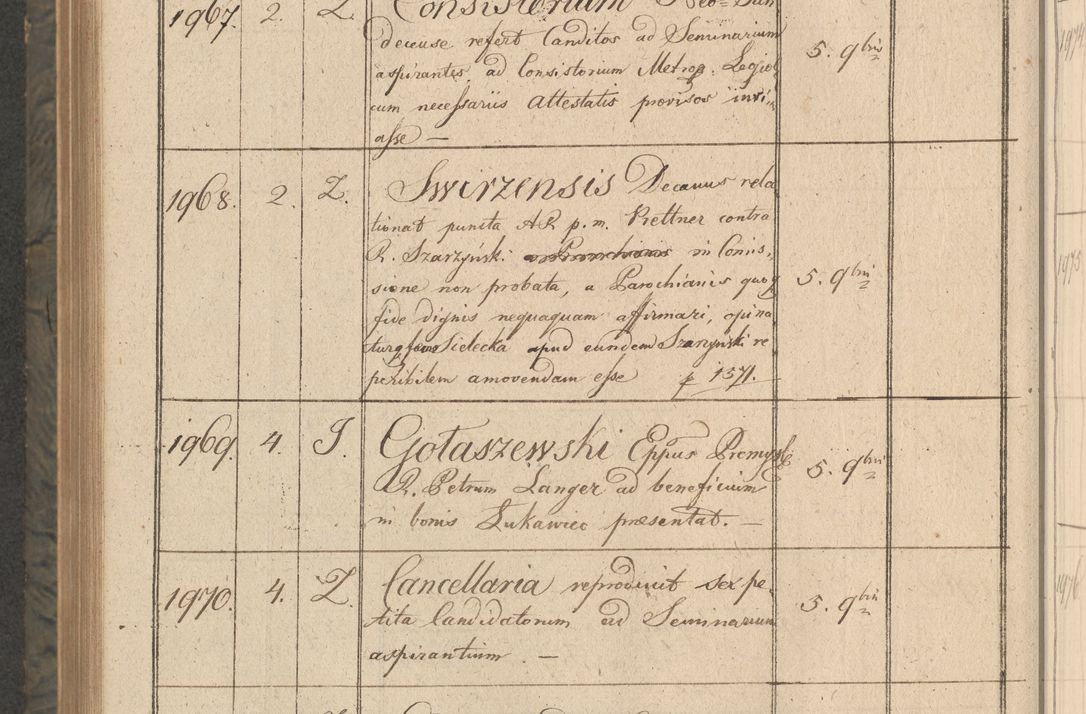 1967. 2. Z. Consistorium Neo-San
decense refert Canditos ad Seminarium
aspirantes, ad Consistorium Metrop. Leopol
cum necessariis attestatis provisos invi-
asse — 5. 9bris
1968. 2. Z. Swirzensis Decanus rela
tionat puncta AR p. m. Rettner contra
R. Szarzyński in Comis-
sione non probata, a Parochianis quoq
fide dignis nequaquam affirmari, opina
turq Sielecka apud eundem Szarzynski re
peribilem amovendam esse p 1571. 5. 9bris
1969. 4. J. Gołaszewski Eppus Premysl
R. Petrum Langer ad beneficium
in bonis Łukawiec præsentat. — 5. 9bris
1970. 4. Z. Cancellaria reproducit sex pe
tita Candidatorum ad Seminarium
aspirantium — 5. 9bris
1974
1975
1976